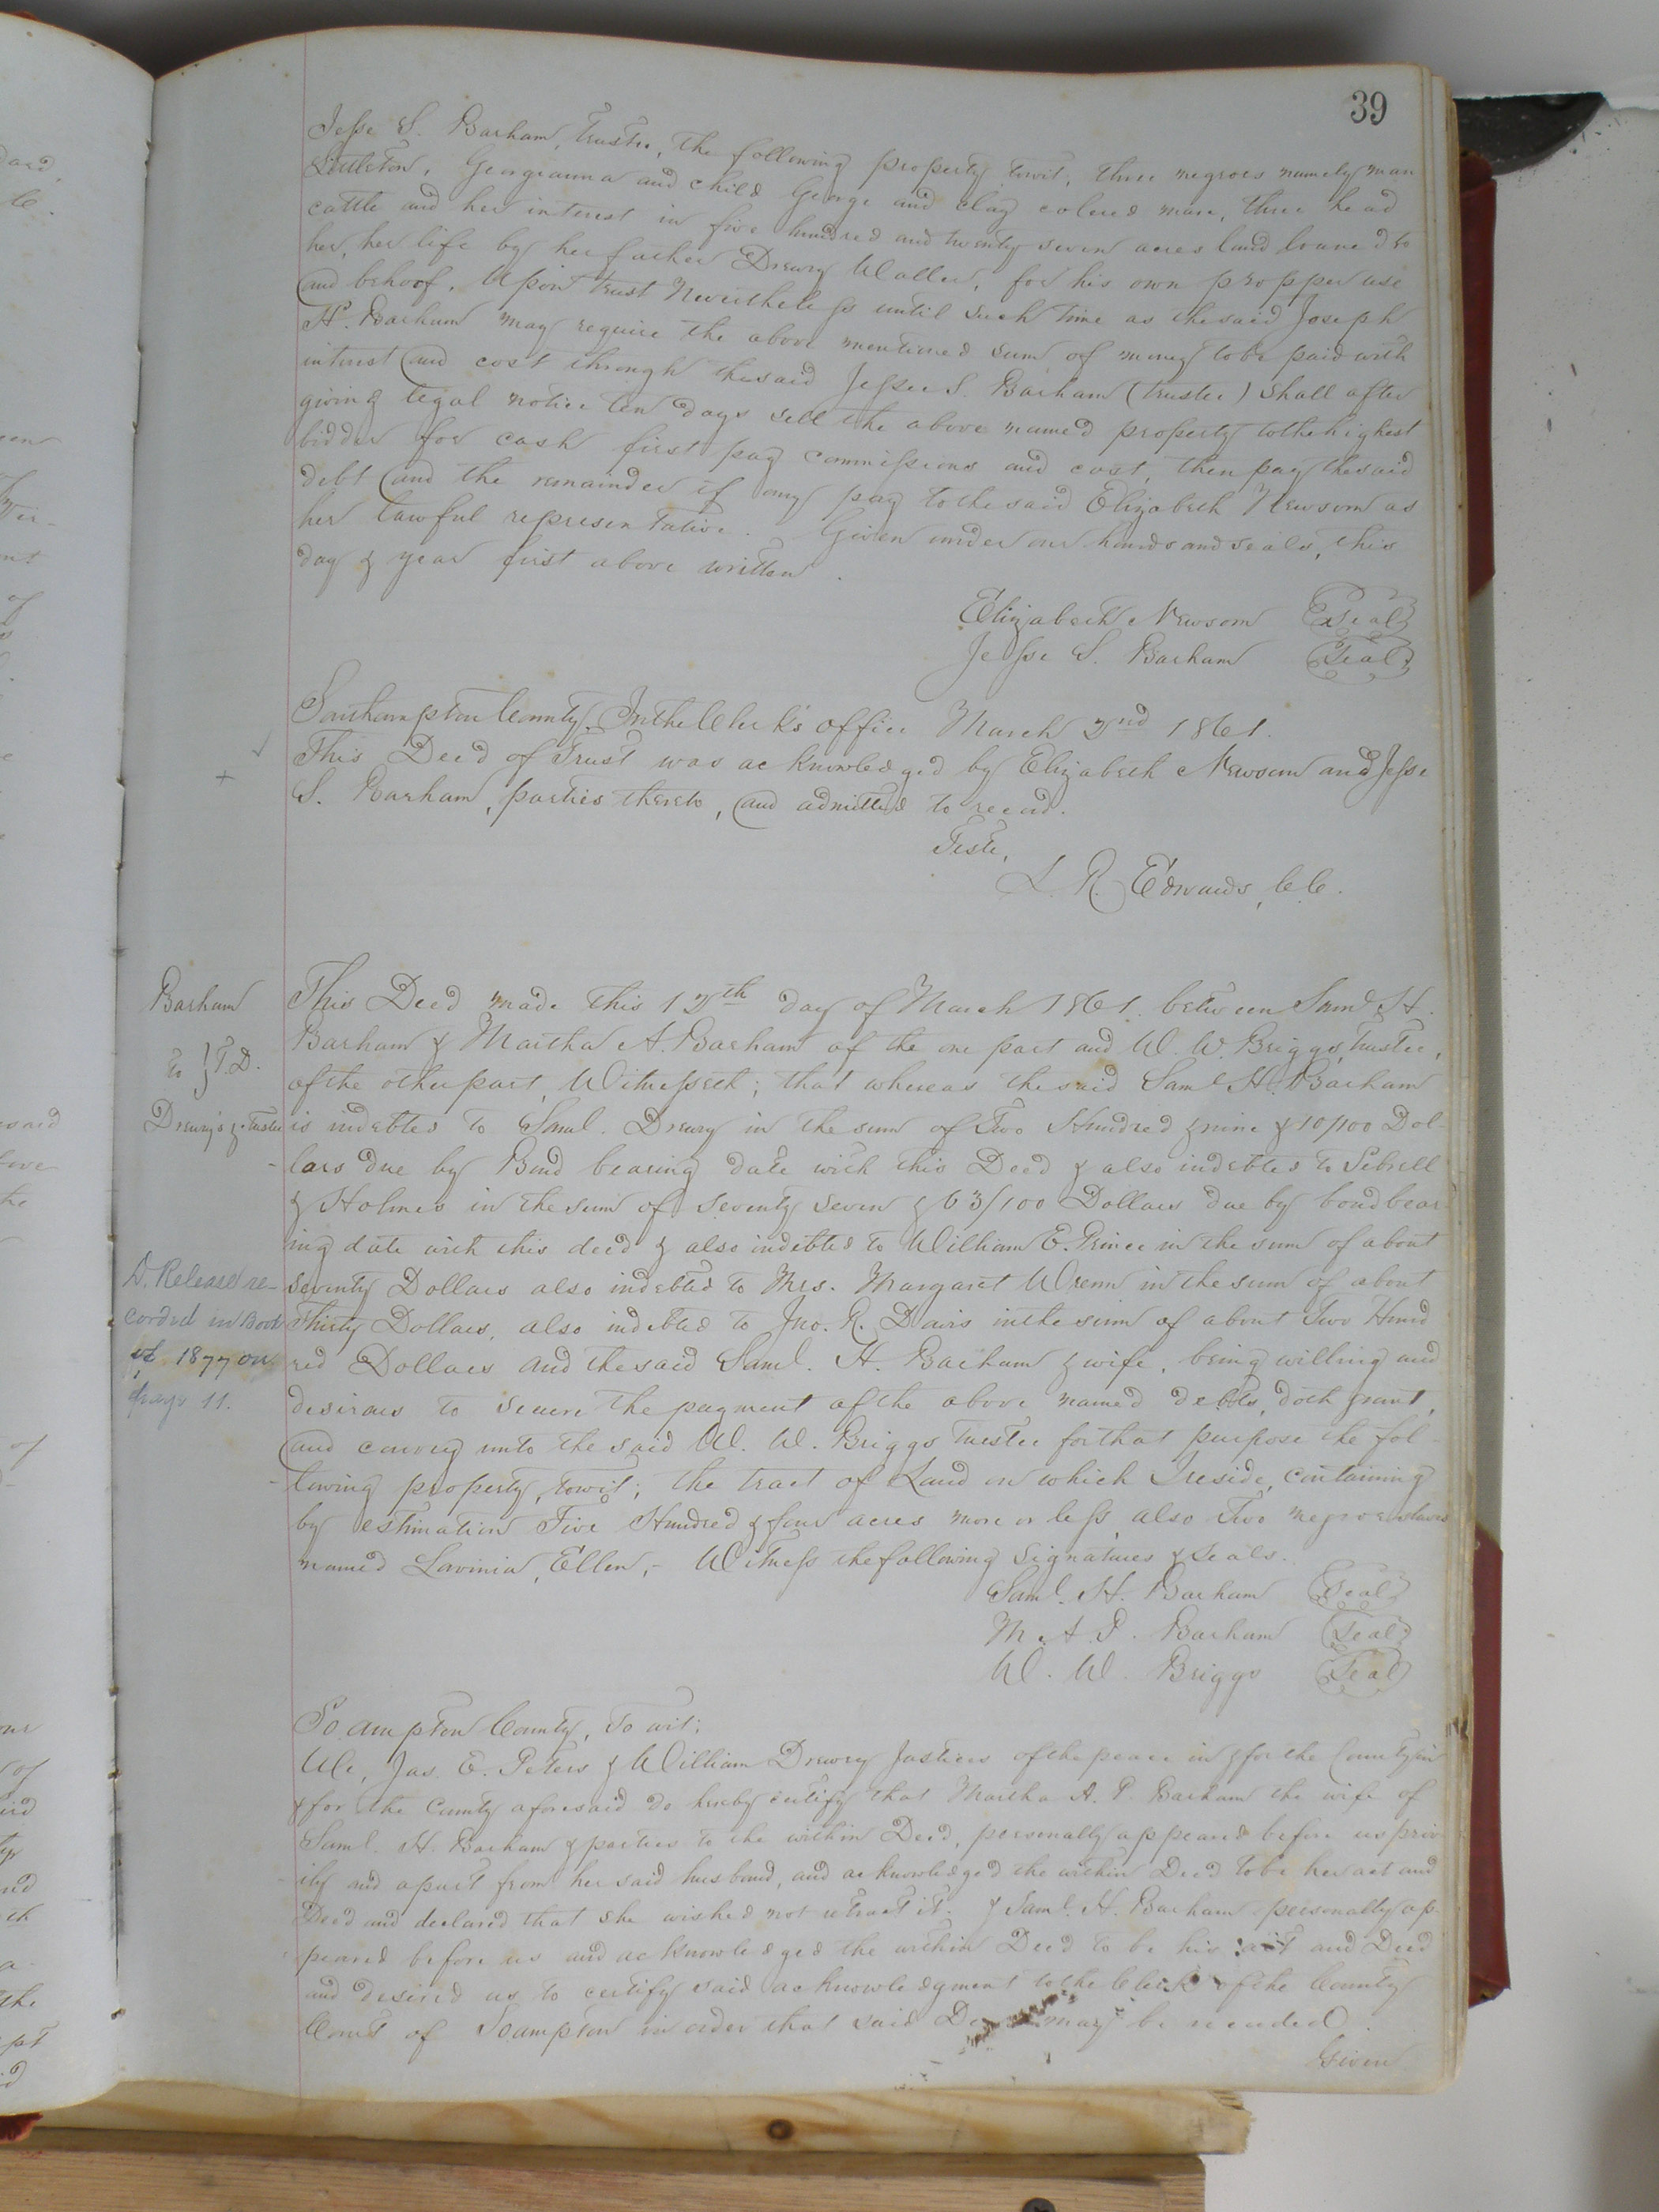 39
Jesse S. Barham, Trustee, the following property towit, three negroes namely man
Littleton, Georgeanna and child George and clay colored mare, three head
cattle and her interest in five hundred and twenty seven acres land loaned to
her, her life by her father Drewry Waller, for his own propper use
and behoof. Upon trust Nevertheless until such time as the said Joseph
H. Barham may require the above mentioned sum of money to be paid with
interest and cost through the said Jesse S. Barham (trustee) shall after
giving legal notice ten days sell the above named property to the highest
bidder for cash first pay commissions and cost, then pay the said
debt and the remainder if any pay to the said Elizabeth Newsom as
her lawful representative. Given under our hands and seals, this
day & year first above written.
Elizabeth Newsom Seal
Jesse S. Barham Seal
Southampton County. In the Clerk's office March 2nd 1861.
This Deed of Trust was acknowledged by Elizabeth Newsom and Jesse
S. Barham, parties thereto, and admitted to record.
Teste,
L. R. Edwards, C.C.
Barham
to } T.D.
Drewry's &c Trustee
This Deed made this 12th day of March 1861. between Saml H.
Barham & Martha A. Barham of the one part and W. W. Briggs, Trustee,
of the other part, Witnesseth; that whereas the said Saml H. Barham
is indebted to Saml. Drewry in the sum of Two Hundred & nine & 10/100 Dol-
lars due by Bond bearing date with this Deed & also indebted to Sebrell
& Holmes in the sum of seventy seven & 63/100 Dollars due by bond bear
ing date with this deed & also indebted to William E. Prince in the sum of about
seventy Dollars also indebted to Mrs. Margaret Wrenn in the sum of about
Thirty Dollars, also indebted to Jno. R. Davis in the sum of about Two Hund
red Dollars and the said Saml. H. Barham & wife, being willing and
desirous to secure the payment of the above named debts, doth grant,
and convey unto the said W. W. Briggs Trustee for that purpose the fol-
lowing property, towit; the tract of Land on which I reside, containing
by estimation Five Hundred & four acres more or less, also Two negroe slaves
named Lavinia, Ellen,- Witness the following signatures & seals.
D. Release re-
corded in Book
of 1877 on
page 11.
Saml. H. Barham Seal
M. A. P. Barham Seal
W. W. Briggs Seal
So.ampton County, to wit;
We, Jas. E. Peters & William Drewry Justices of the peace in & for the County in
& for the County aforesaid do hereby certify that Martha A. P. Barham the wife of
Saml. H. Barham & parties to the within Deed, personally appeared before us priv
ily and apart from her said husband, and acknowledged the within Deed to be her act and
Deed and declared that she wished not retract it. & Saml. H. Barham personally ap-
peared before us and acknowledged the within Deed to be his act and Deed
and desired us to certify said acknowledgment to the Clerk of the County
Court of Soampton in order that said may be recorded.
Given